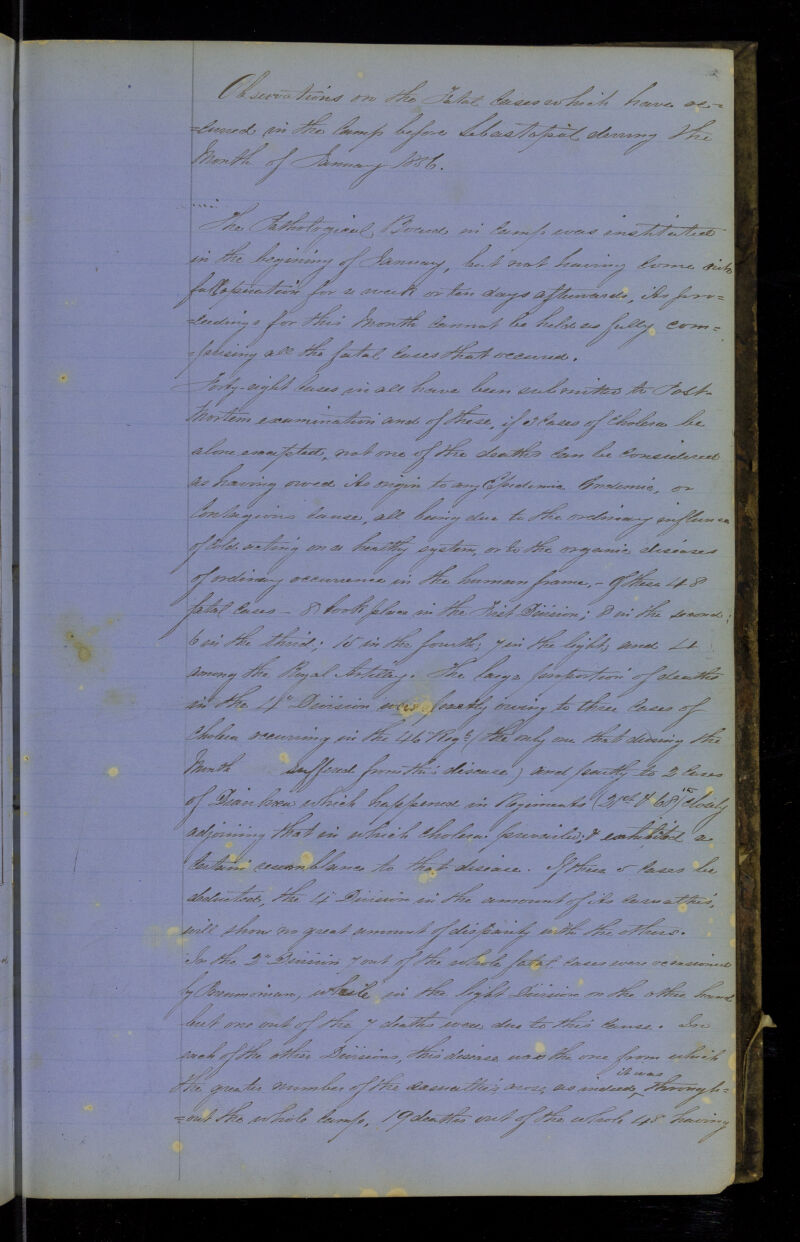 Observations on the Fatal Cases which have oc-=
=curred in the Camp before Sebastopol during the
Month of January 1856.
The Pathological Board in Camp was instituted
in the begining of January, but not having come into
full operation for a week or ten days afterwards, its pro-=
=ceedings for this Month cannot be held as fully com=
=prising all the fatal cases that occured.
Forty-eight cases in all have been submitted to Post-
Mortem examination and of these, if 3 cases of Cholera be
alone excepted, not one of the deaths can be considered
as having owed its origin to any Epidemic Endemic, or
Contagious cause, all being due to the ordinary influence
of Cold acting on a healthy system, or to the organic diseases
of ordinary occurrence in the human frame, - Of these 48
fatal cases - 8 took place in the First Division; 8 in the second;
6 in the third; 15 in the fourth; 7 in the light; and 4
among the Royal Artillery. The large proportion of deaths
in the 4th Division was partly owing to three cases of
Cholera occurring in the 46th Regt (the only one that during the
Month suffered from this disease) and partly to 2 cases
of Diarrhoea which happened in Regiments (2nd & 68th) closely
adjoining that in which Cholera prevailed, & exhibited a
certain resemblance to that disease. If these 5 cases be
deducted, the 4 Division in the amount of its casualties,
will show no great amount of disparity with the others.
In the 2nd Division 7 out of the whole fatal cases were occasioned
by Pneumonia, while in the light Division on the other hand
but one out of the 7 deaths were due to this cause. In
each of the other Divisions, this disease was the one from which
the greater number of the casualties arose, as indeed, it was through-=
=out the whole Camp, 19 deaths out of the whole 48 having